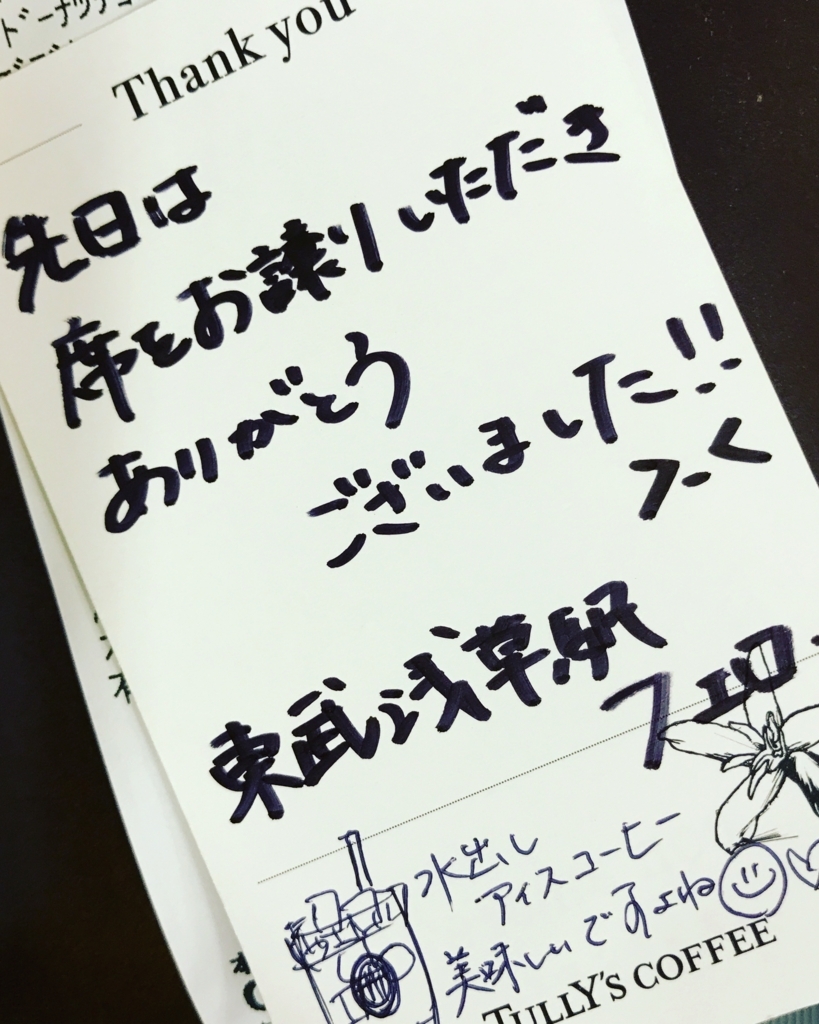 Thank you
先日は
席をお譲りしただき
ありがとう
ございました!!
東武浅草駅
フェロー
水出し
アイスコーヒー
美味しいですよね
TULLY'S COFFEE